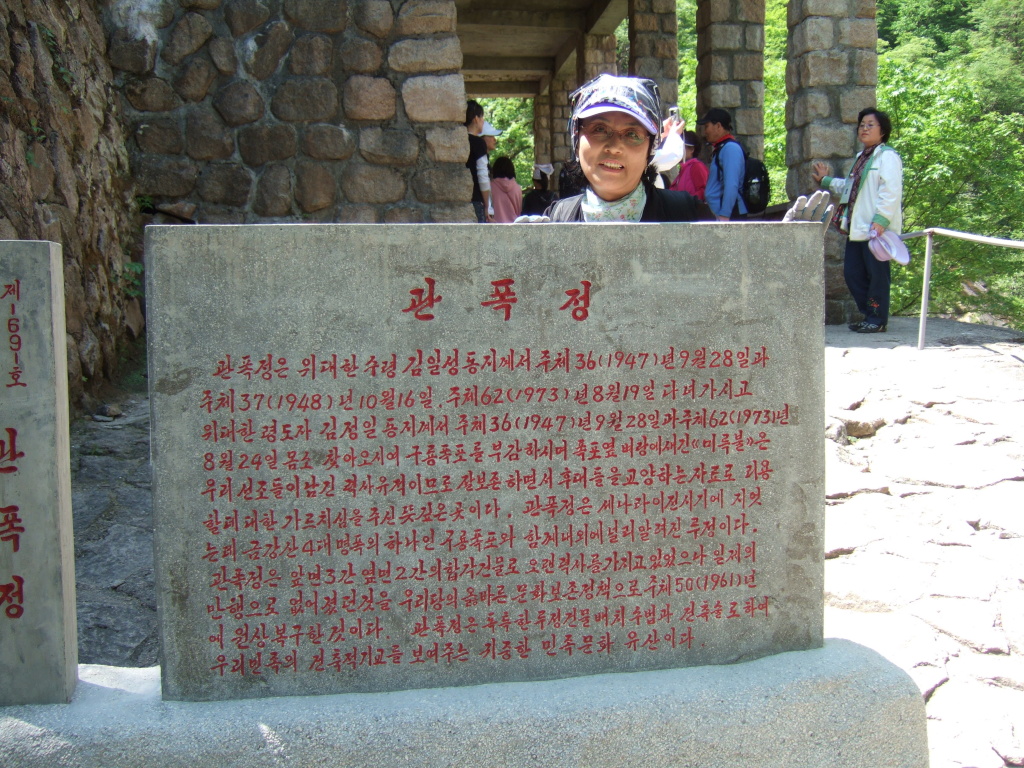 제-169-호
관폭정
관 폭 정
관폭정은 위대한 수령 김일성동지께서 주체36(1947)년 9월 28일과
주체37(1948)년 10월16일, 주체62(1973)년 8월19일 다녀가시고
위대한 령도자 김정일 동지께서 주체36(1947)년 9월 28일과 주체62(1973)년
8월24일 몸소 찾아오시여 구룡폭포를 부감하시며 폭포옆 벼랑에새긴《미륵불》은
우리 선조들이 남긴 력사유적이므로 잘보존하면서 후대들을교양하는자료로 리용
할데 대한 가르치심을 주신 뜻깊은곳이다. 관폭정은 세나라이전시기에 지었
는데 금강산 4대명폭의 하나인 구룡폭포와 함께 내외에널리알려진 루정이다.
관폭정은 앞면3간 옆면2간의합각건물로 오랜력사를가지고있었으나 일제의
만행으로 없어졌던것을 우리당의 옳바른 문화보존정책으로 주체50(1961)년
에 원상복구한 것이다. 관폭정은 독특한 루정건물배치수법과 건축술로 하여
우리민족의 건축적기교를 보여주는 귀중한 민족문화 유산이다.